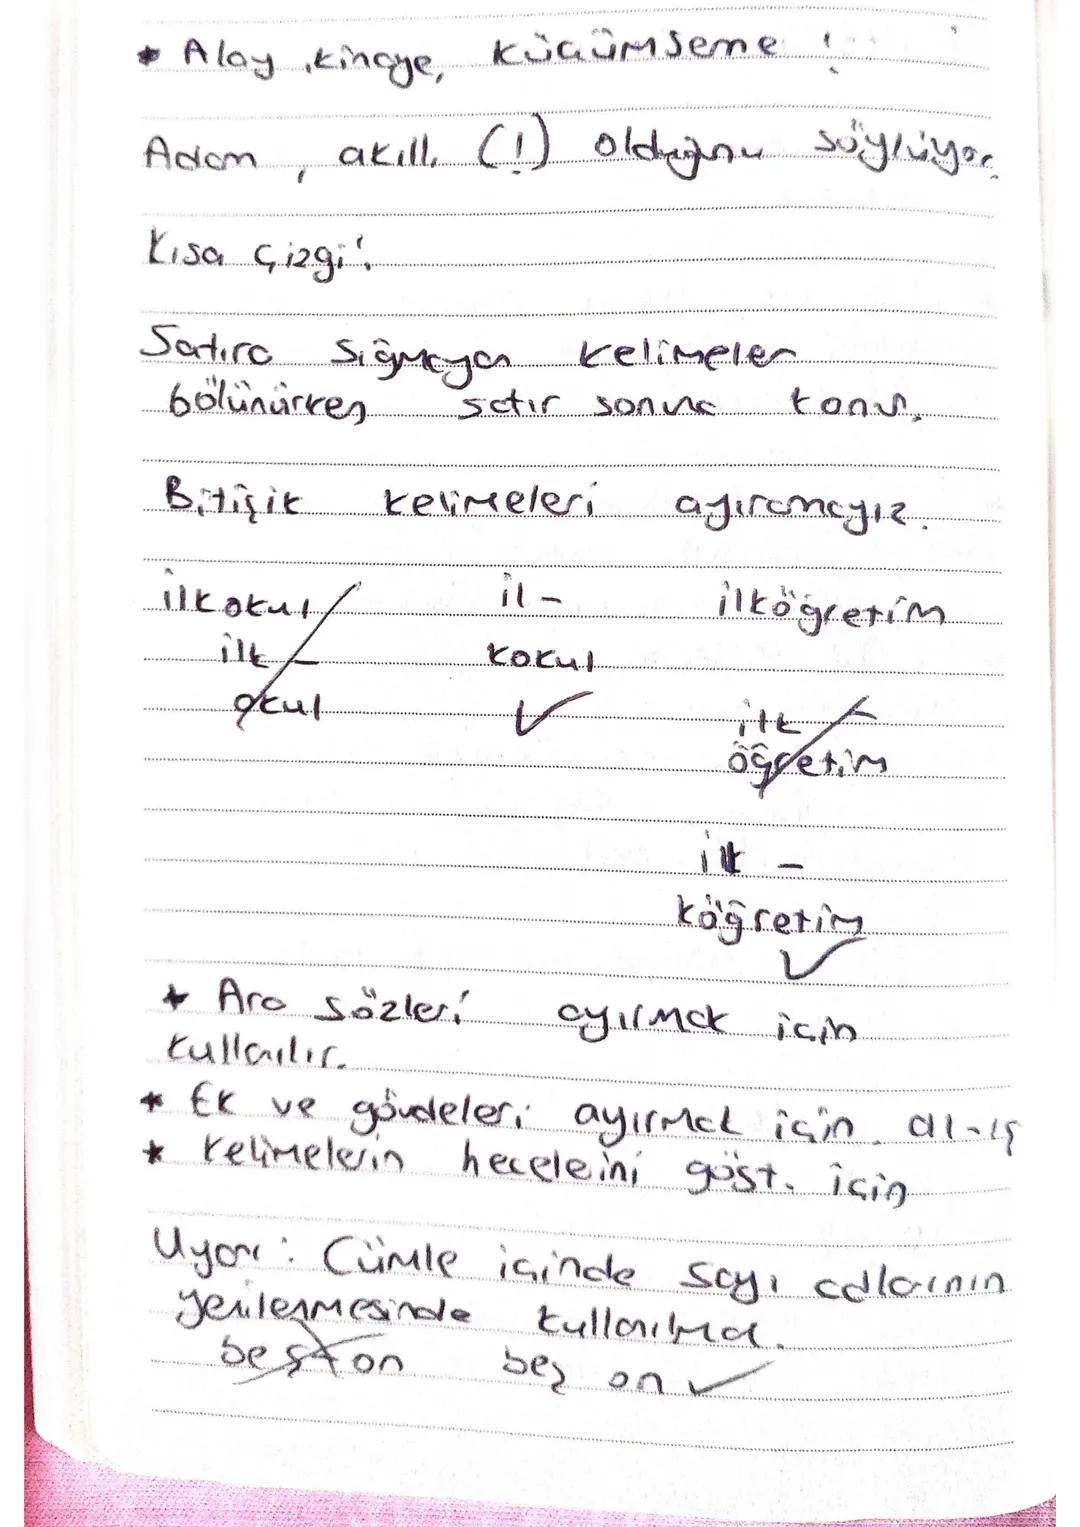 * Alay, kinaye, küçümseme !
Adam, akıllı (!) olduğunu söylüyor.
Kısa Çizgi:
Satıra sığmayan kelimeler
bölünürken satır sonuna konur.
Bitişik kelimeleri ayıramayız.
ilkokul il- ilköğretim
ilk- kokul
okul ✓ ilk-
öğretim
ilk -
köğretim
✓
* Ara sözleri ayırmak için
kullanılır.
* Ek ve gövdeleri ayırmak için. al-ış
* Kelimelerin heceleini göst. için
Uyarı: Cümle içinde sayı adlarının
yenilenmesinde kullanılmaz.
beş-on beş on ✓